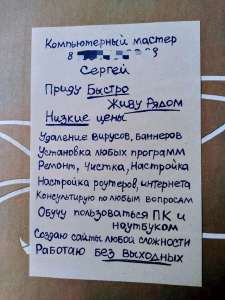 Компьютерный мастер
8
Сергей
Приду Быстро
Живу Рядом
Низкие цены
Удаление вирусов, баннеров
Установка любых программ
Ремонт, Чистка, Настройка
Настройка роутеров, интернета
Консультирую по любым вопросам
Обучу пользоваться ПК и
ноутбуком
Создаю сайты любой сложности
Работаю без выходных